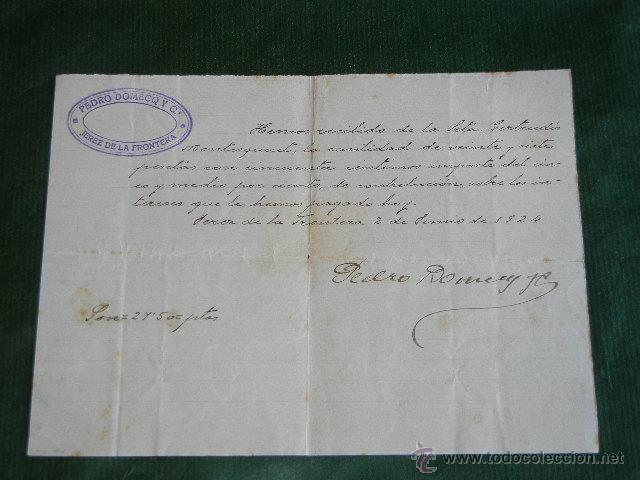 PEDRO DOMECQ Y Cª
JEREZ DE LA FRONTERA
Hemos recibido de la Srta. Gertrudis
la cantidad de veinte y siete
pesetas con cincuenta centimos importe del cin-
co y medio por ciento, de contribución, sobre los in-
tereses que le hemos pagado hoy.
Jerez de la Frontera 2 de de 1924
Pedro Domecq y Cª
Son=27'50=ptas
© www.todocoleccion.net